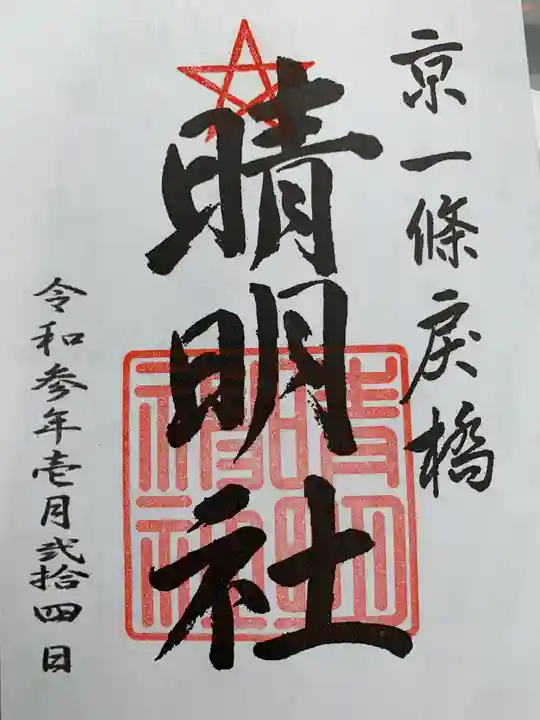 京一條戻橋
晴明社
令和参年壱月弐拾四日